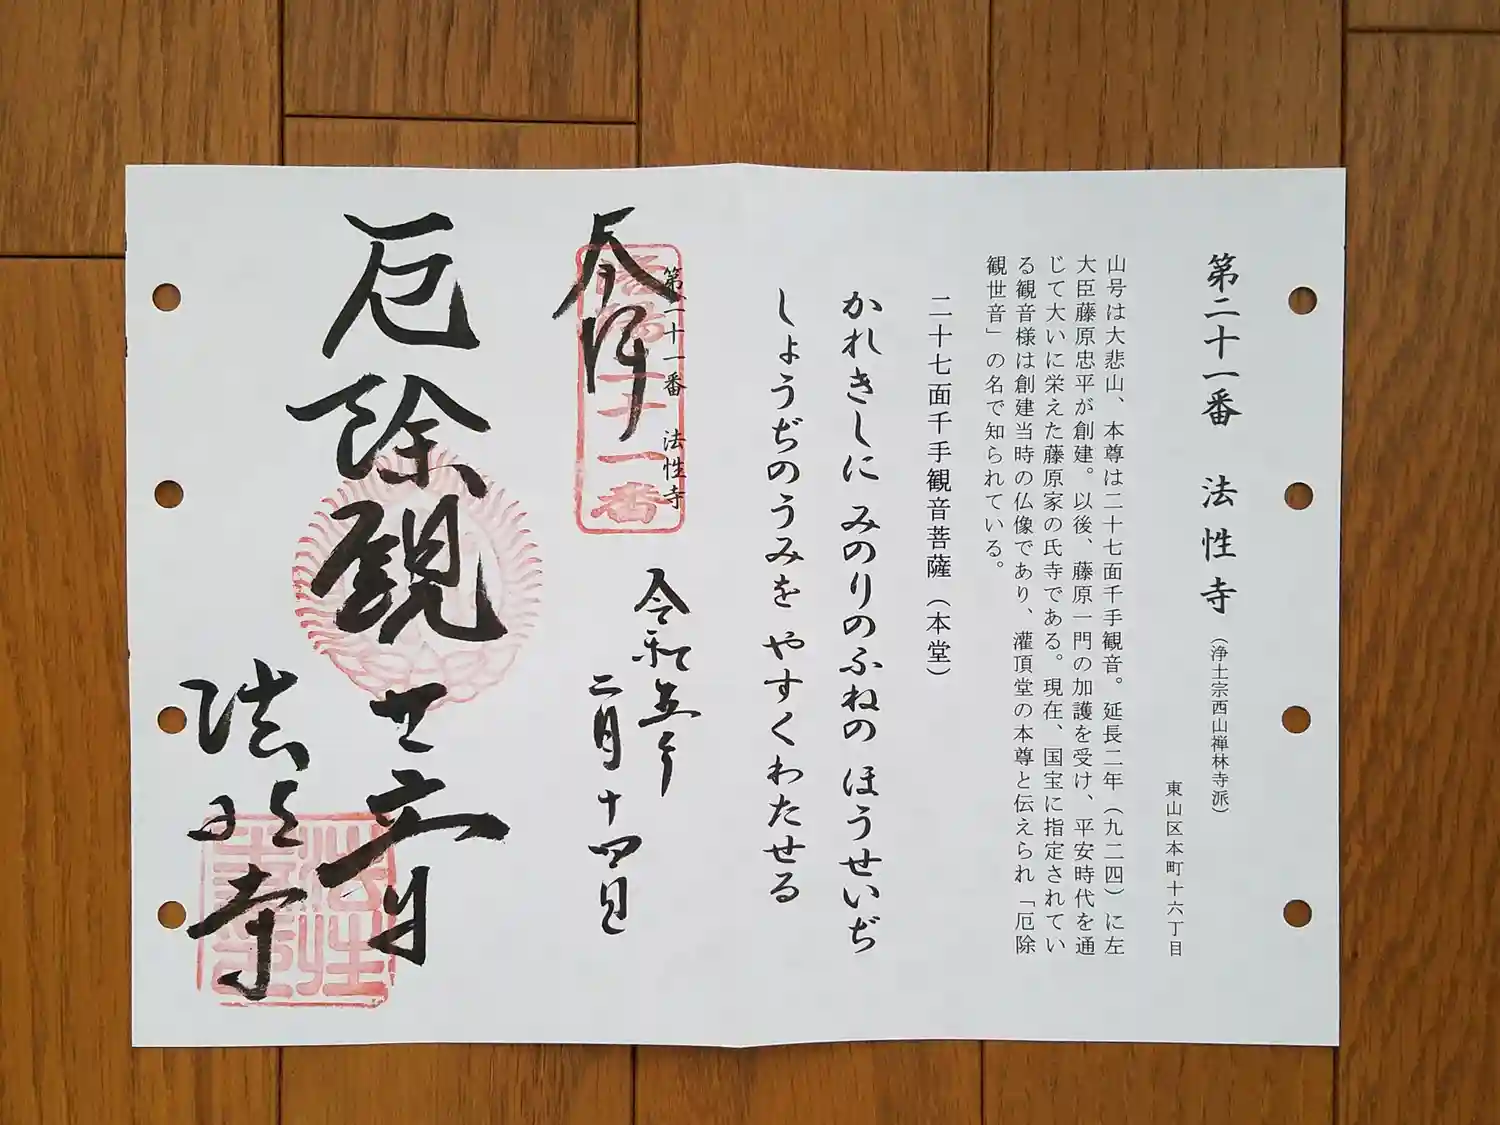 第二十一番 法性寺 (浄土宗西山禅林寺派)
東山区本町十六丁目
山号は大悲山、本尊は二十七面千手観音。延長二年(九二四)に左
大臣藤原忠平が創建。以後、藤原一門の加護を受け、平安時代を通
じて大いに栄えた藤原家の氏寺である。現在、国宝に指定されてい
る観音様は創建当時の仏像であり、灌頂堂の本尊と伝えられ「厄除
観世音」の名で知られている。
二十七面千手観音菩薩(本堂)
かれきしに みのりのふねの ほうせいぢ
しょうぢのうみを やすくわたせる
第二十一番 法性寺
奉拝
洛陽二十一番
令和五年
二月十四日
厄除観世音
法性寺